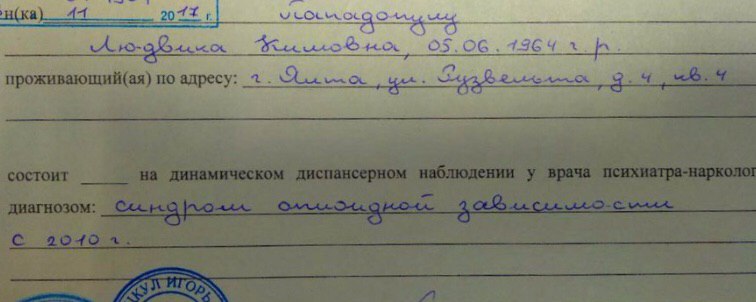 ен(ка) 11 2017 г. Пападопулу
Людвика Кимовна, 05.06.1964 г.р.
проживающий(ая) по адресу: г. Ялта, ул. Рузвельта, д. 4, кв. 4
состоит на динамическом диспансерном наблюдении у врача психиатра-нарколог
диагнозом: синдром опиоидной зависимости
с 2010 г.
КУЛ ИГОРЬ